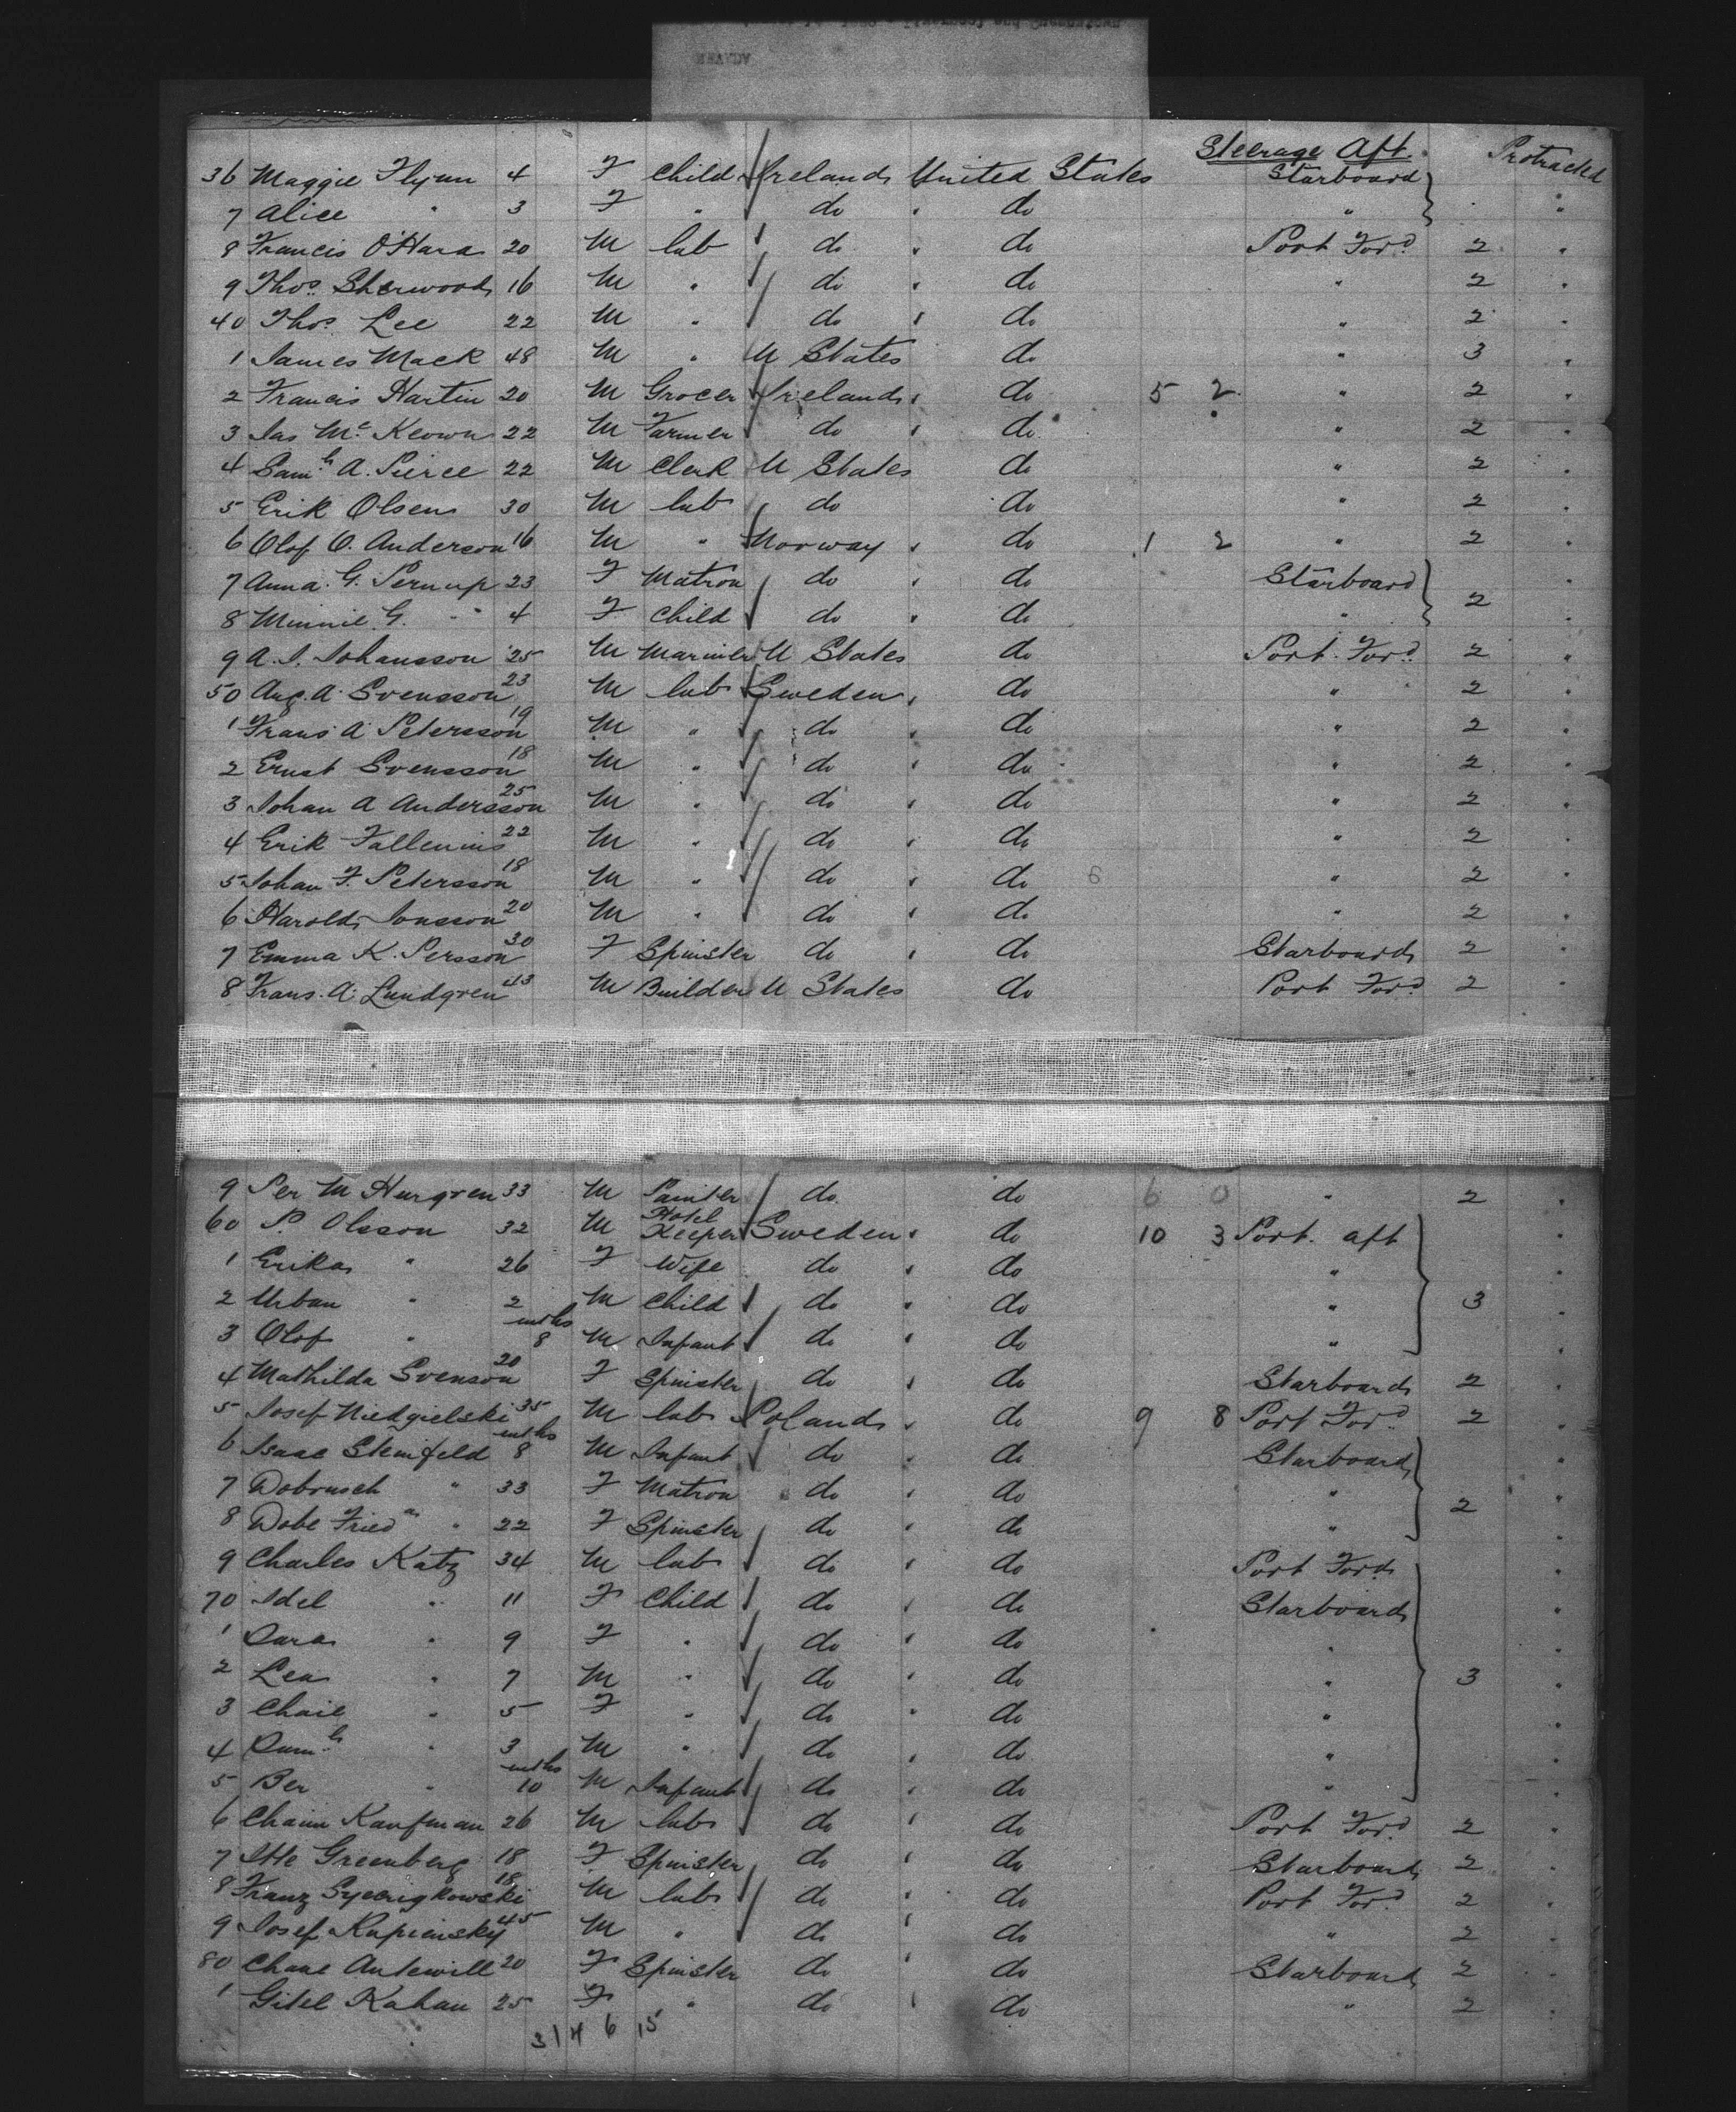 Steerage Aft. Protracted
36 Maggie Flynn 4 F Child Ireland United States Starboard "
7 Alice " 3 F " do " do " "
8 Francis O'Hara 20 M lab do " do Port Ford 2 "
9 Thos. Sherwood 16 M " do " do " 2 "
40 Thos. Lee 22 M " do " do " 2 "
1 James Mack 48 M " U States do " 3 "
2 Francis Hartin 20 M Grocer Ireland " do 5 2 " 2 "
3 Jas Mc Keown 22 M Farmer do " do " 2 "
4 Saml A. Pierce 22 M Clerk U States do " 2 "
5 Erik Olsen 30 M lab do do " 2 "
6 Olof O. Anderson 16 M " Norway " do 1 2 " 2 "
7 Anna G. 23 F Matron do " do Starboard "
8 Minnie G. " 4 F Child do " do " 2 "
9 A. J. Johansson 25 M Mariner U States do Port Ford 2 "
50 Aug. A. Svensson 23 M lab Sweden " do " 2 "
1 Frans A Petersson 19 M " do " do " 2 "
2 Ernst Svensson 18 M " do " do " 2 "
3 Johan A Andersson 25 M " do " do " 2 "
4 Erik Fallenius 22 M " do " do " 2 "
5 Johan F. Petersson 18 M " do " do 6 " 2 "
6 Harold Jonsson 20 M " do " do " 2 "
7 Emma K. Persson 30 F Spinster do " do Starboard 2 "
8 Frans. A. Lundgren 43 M Builder U States do Port Ford 2 "
9 Per M Hurgren 33 M Painter do do 6 0 " 2 "
60 P. Olsson 32 M Hotel Keeper Sweden " do 10 3 Port aft "
1 Erika " 26 F Wife do " do " "
2 Urban " 2 M Child do " do " 3 "
3 Olof " mths 8 M Infant do " do " "
4 Mathilda Svenson 20 F Spinster do " do Starboard 2 "
5 Josef Niedgielski 35 M lab Poland " do 9 8 Port Ford 2 "
6 Isaac Steinfeld mths 8 M Infant do " do Starboard "
7 Dobrusch " 33 F Matron do " do " 2 "
8 Dobe Fried " 22 F Spinster do " do " "
9 Charles Katz 34 M lab do " do Port Ford "
70 Idel " 11 F Child do " do Starboard "
1 Sara " 9 F " do " do " "
2 Lea " 7 M " do " do " 3 "
3 Chaie " 5 F " do " do " "
4 Saml " 3 M " do " do " "
5 Ber " mths 10 M Infant do " do " "
6 Chaim Kaufman 26 M lab do " do Port Ford 2 "
7 Itte Greenberg 18 F Spinster do " do Starboard 2 "
8 Franz 18 M lab do " do Port Ford 2 "
9 Josef Kupiensky 45 M " do " do " 2 "
80 Chane Antewill 20 F Spinster do " do Starboard 2 "
1 Gitel Kahan 25 F " do " do " 2 "
3 14 6 15